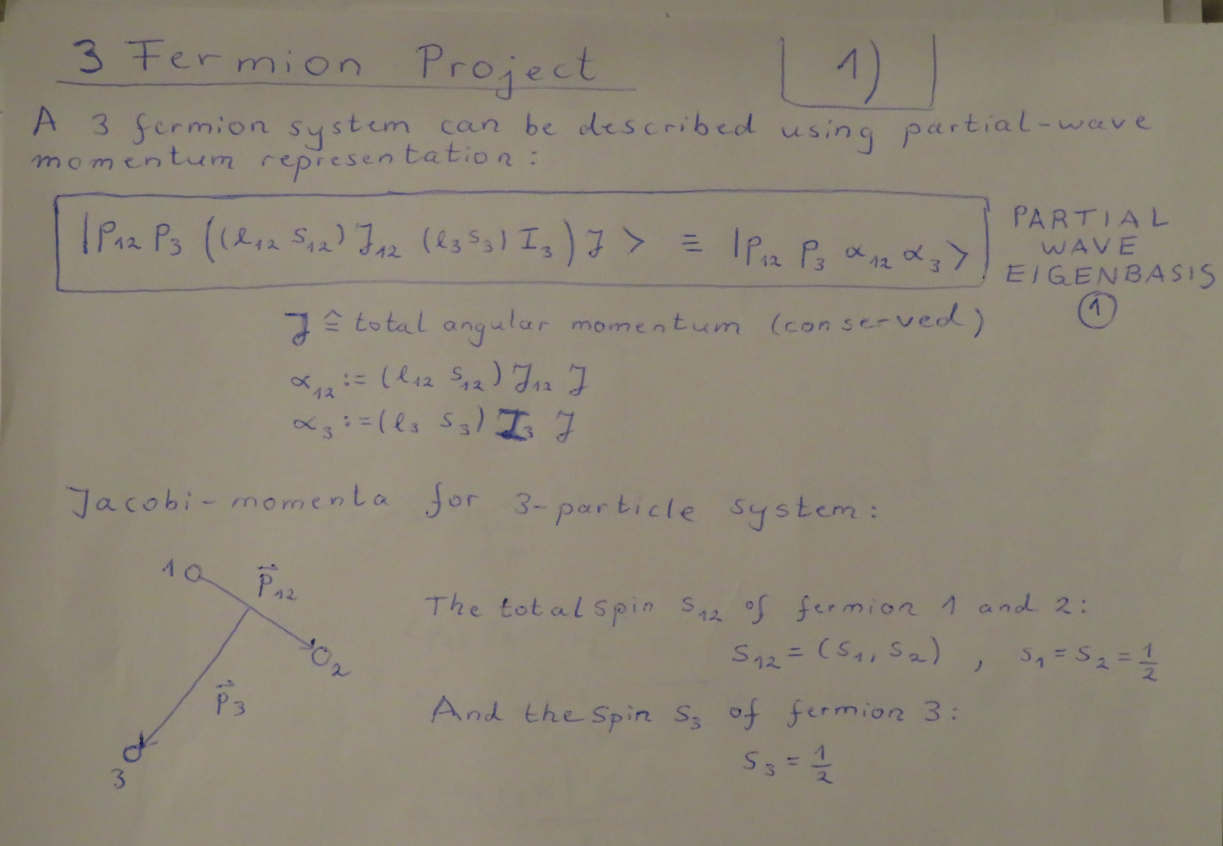 3 Fermion Project
1)
A 3 fermion system can be described using partial-wave
momentum representation:
|P₁₂ P₃ ((ℓ₁₂ s₁₂) J₁₂ (ℓ₃ s₃) I₃) J > ≡ |P₁₂ P₃ α₁₂ α₃ >
PARTIAL
WAVE
EIGENBASIS
①
J ≙ total angular momentum (conserved)
α₁₂ := (ℓ₁₂ s₁₂) J₁₂ J
α₃ := (ℓ₃ s₃) I₃ J
Jacobi-momenta for 3-particle system:
1
p⃗₁₂
2
p⃗₃
3
The total spin s₁₂ of fermion 1 and 2:
s₁₂ = (s₁, s₂) , s₁ = s₂ = 1/2
And the spin s₃ of fermion 3:
s₃ = 1/2